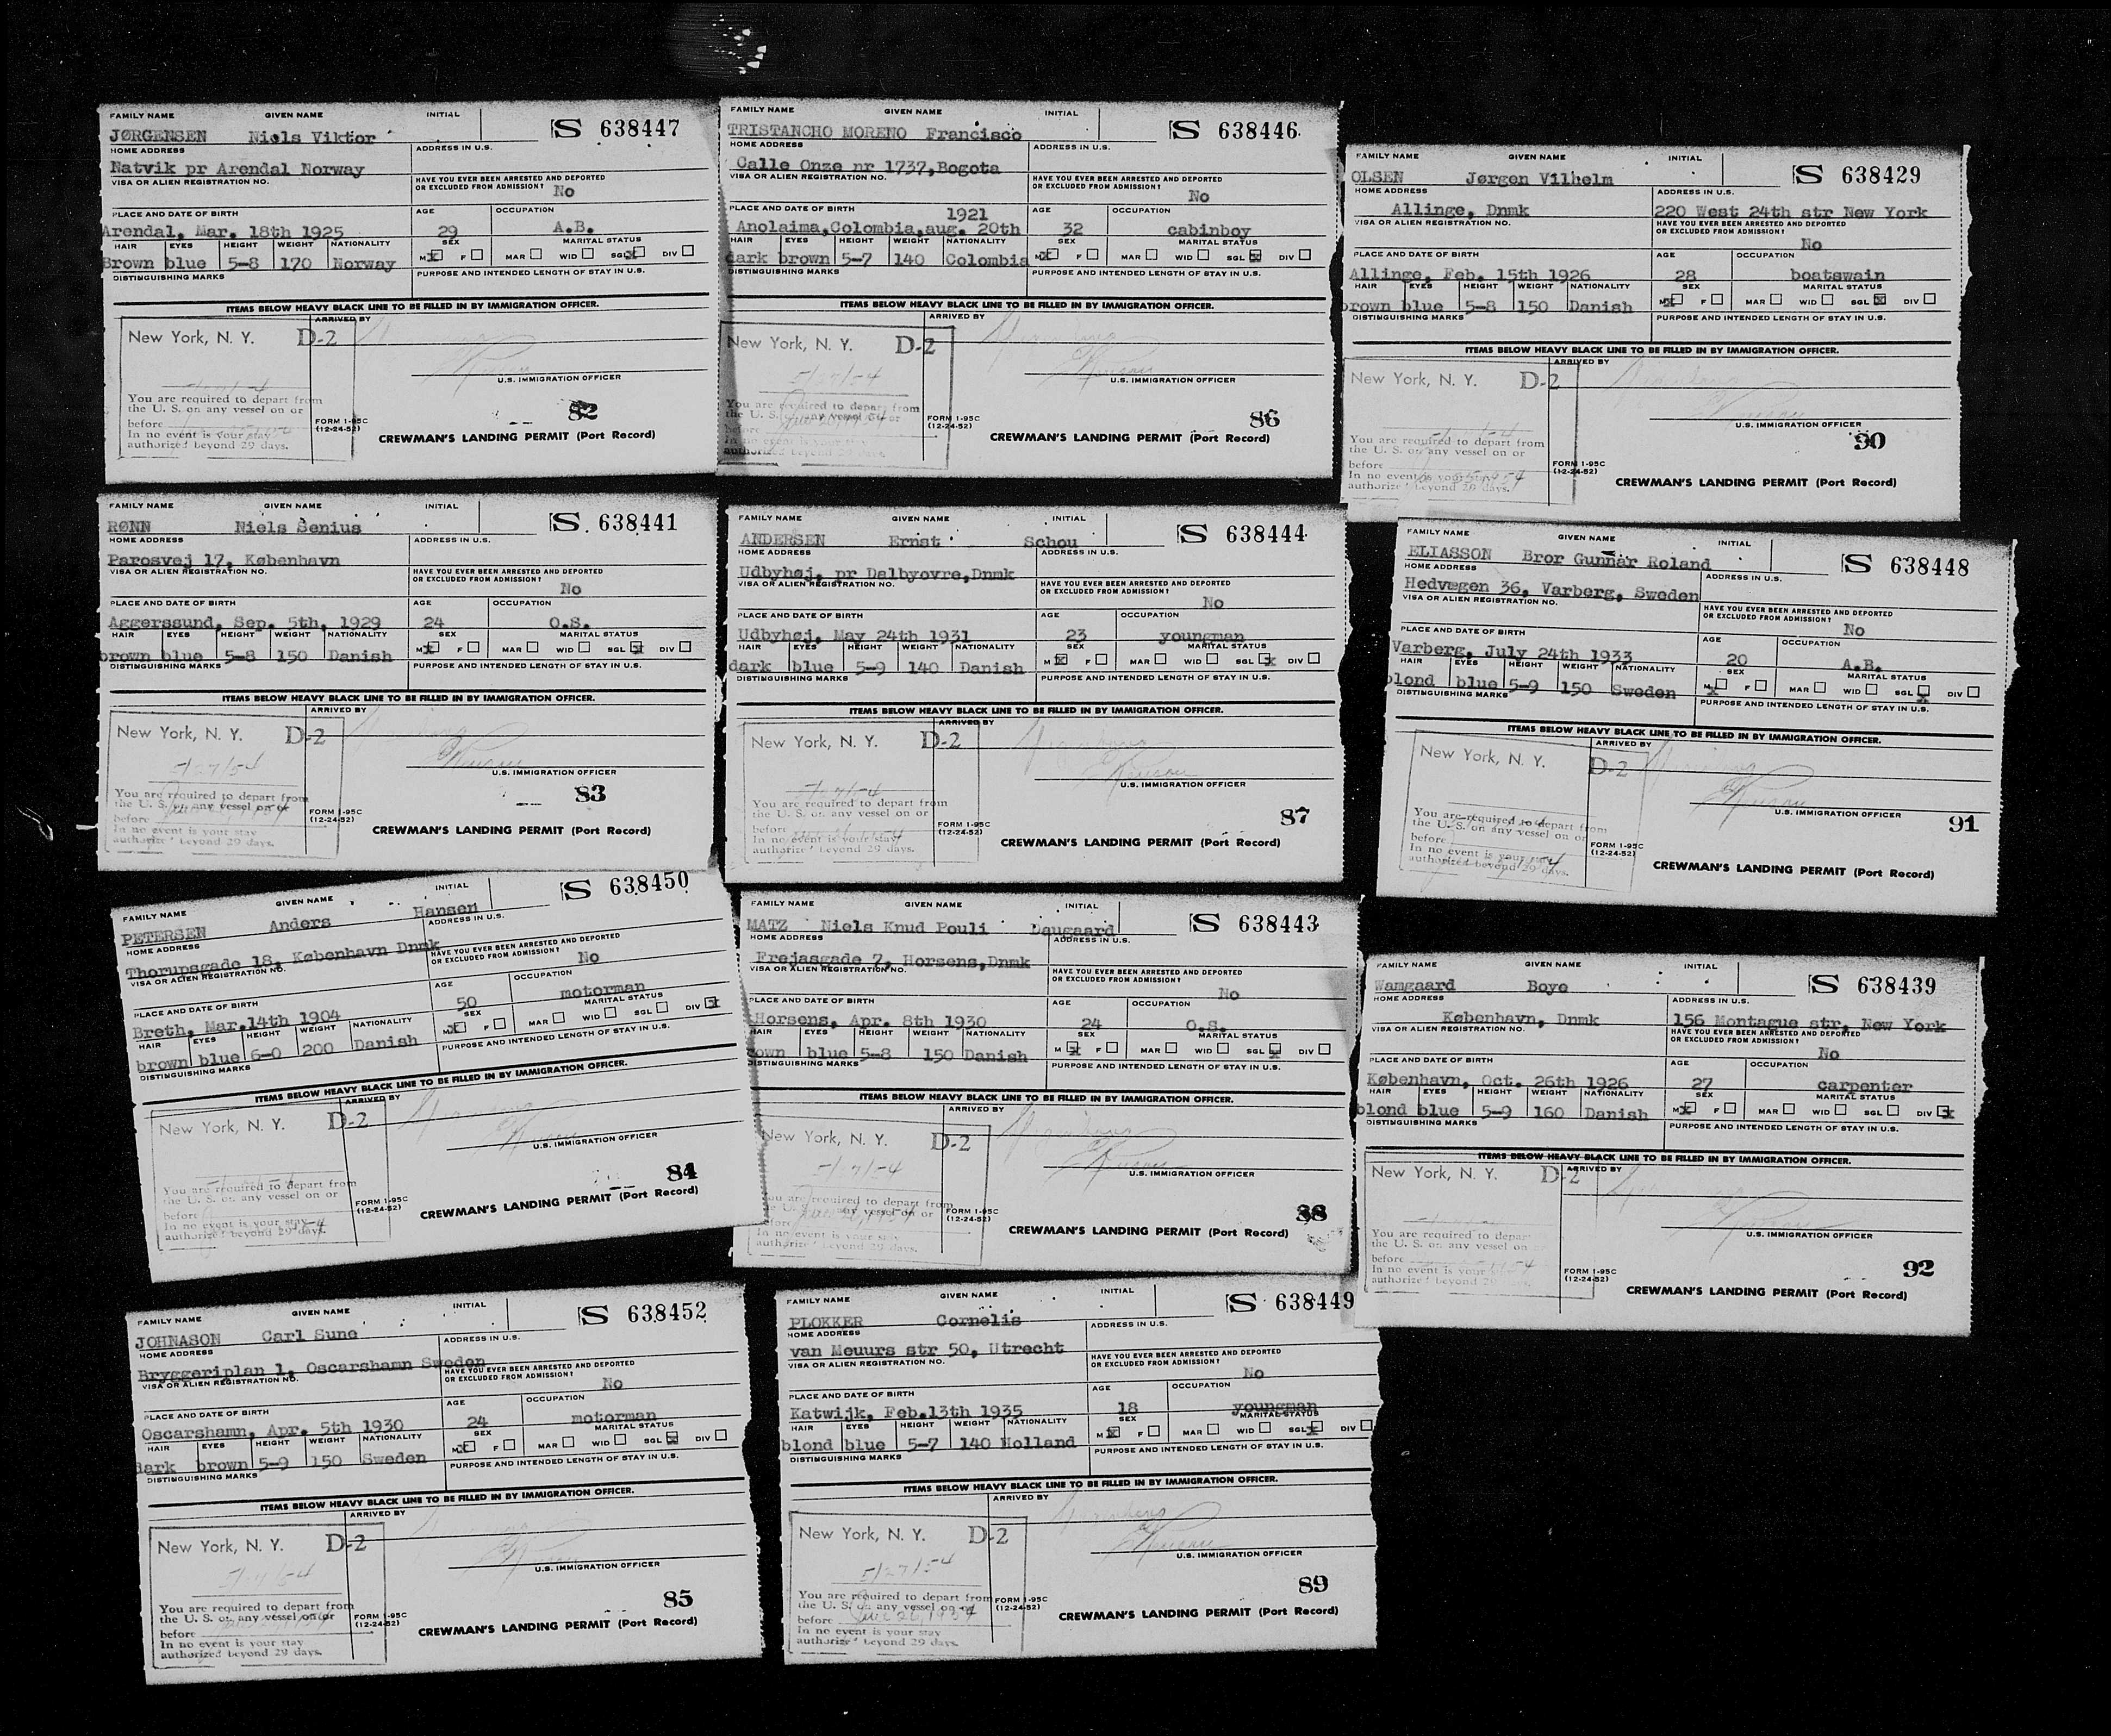 FAMILY NAME GIVEN NAME INITIAL
JØRGENSEN Niels Viktor S 638447
HOME ADDRESS ADDRESS IN U.S.
Natvik pr Arendal Norway
VISA OR ALIEN REGISTRATION NO. HAVE YOU EVER BEEN ARRESTED AND DEPORTED
OR EXCLUDED FROM ADMISSION?
No
PLACE AND DATE OF BIRTH AGE OCCUPATION
Arendal, Mar. 18th 1925 29 A.B.
HAIR EYES HEIGHT WEIGHT NATIONALITY SEX MARITAL STATUS
Brown blue 5-8 170 Norway M x F MAR WID SGL x DIV
DISTINGUISHING MARKS PURPOSE AND INTENDED LENGTH OF STAY IN U.S.
ITEMS BELOW HEAVY BLACK LINE TO BE FILLED IN BY IMMIGRATION OFFICER.
ARRIVED BY
New York, N. Y. D-2
U.S. IMMIGRATION OFFICER
You are required to depart from
the U. S. on any vessel on or
before
In no event is your stay
authorized beyond 29 days.
FORM I-95C
(12-24-52)
82
CREWMAN'S LANDING PERMIT (Port Record)
FAMILY NAME GIVEN NAME INITIAL
RØNN Niels Senius S 638441
HOME ADDRESS ADDRESS IN U.S.
Parosvej 17, København
VISA OR ALIEN REGISTRATION NO. HAVE YOU EVER BEEN ARRESTED AND DEPORTED
OR EXCLUDED FROM ADMISSION?
No
PLACE AND DATE OF BIRTH AGE OCCUPATION
Aggerssund, Sep. 5th, 1929 24 O.S.
HAIR EYES HEIGHT WEIGHT NATIONALITY SEX MARITAL STATUS
brown blue 5-8 150 Danish M x F MAR WID SGL x DIV
DISTINGUISHING MARKS PURPOSE AND INTENDED LENGTH OF STAY IN U.S.
ITEMS BELOW HEAVY BLACK LINE TO BE FILLED IN BY IMMIGRATION OFFICER.
ARRIVED BY
New York, N. Y. D-2
5/27/54
U.S. IMMIGRATION OFFICER
You are required to depart from
the U. S. on any vessel on or
before
In no event is your stay
authorized beyond 29 days.
FORM I-95C
(12-24-52)
83
CREWMAN'S LANDING PERMIT (Port Record)
FAMILY NAME GIVEN NAME INITIAL
PETERSEN Anders Hansen S 638450
HOME ADDRESS ADDRESS IN U.S.
Thorupsgade 18, København Dnmk
VISA OR ALIEN REGISTRATION NO. HAVE YOU EVER BEEN ARRESTED AND DEPORTED
OR EXCLUDED FROM ADMISSION?
No
PLACE AND DATE OF BIRTH AGE OCCUPATION
Breth, Mar.14th 1904 50 motorman
HAIR EYES HEIGHT WEIGHT NATIONALITY SEX MARITAL STATUS
brown blue 6-0 200 Danish M x F MAR WID SGL DIV x
DISTINGUISHING MARKS PURPOSE AND INTENDED LENGTH OF STAY IN U.S.
ITEMS BELOW HEAVY BLACK LINE TO BE FILLED IN BY IMMIGRATION OFFICER.
ARRIVED BY
New York, N. Y. D-2
U.S. IMMIGRATION OFFICER
You are required to depart from
the U. S. on any vessel on or
before
In no event is your stay
authorized beyond 29 days.
FORM I-95C
(12-24-52)
84
CREWMAN'S LANDING PERMIT (Port Record)
FAMILY NAME GIVEN NAME INITIAL
JOHNASON Carl Sune S 638452
HOME ADDRESS ADDRESS IN U.S.
Bryggeriplan 1, Oscarshamn Sweden
VISA OR ALIEN REGISTRATION NO. HAVE YOU EVER BEEN ARRESTED AND DEPORTED
OR EXCLUDED FROM ADMISSION?
No
PLACE AND DATE OF BIRTH AGE OCCUPATION
Oscarshamn, Apr. 5th 1930 24 motorman
HAIR EYES HEIGHT WEIGHT NATIONALITY SEX MARITAL STATUS
dark brown 5-9 150 Sweden M x F MAR WID SGL x DIV
DISTINGUISHING MARKS PURPOSE AND INTENDED LENGTH OF STAY IN U.S.
ITEMS BELOW HEAVY BLACK LINE TO BE FILLED IN BY IMMIGRATION OFFICER.
ARRIVED BY
New York, N. Y. D-2
U.S. IMMIGRATION OFFICER
You are required to depart from
the U. S. on any vessel on or
before
In no event is your stay
authorized beyond 29 days.
FORM I-95C
(12-24-52)
85
CREWMAN'S LANDING PERMIT (Port Record)
FAMILY NAME GIVEN NAME INITIAL
TRISTANCHO MORENO Francisco S 638446
HOME ADDRESS ADDRESS IN U.S.
Calle Onze nr 1737, Bogota
VISA OR ALIEN REGISTRATION NO. HAVE YOU EVER BEEN ARRESTED AND DEPORTED
OR EXCLUDED FROM ADMISSION?
No
PLACE AND DATE OF BIRTH 1921 AGE OCCUPATION
Anolaima,Colombia,aug. 20th 32 cabinboy
HAIR EYES HEIGHT WEIGHT NATIONALITY SEX MARITAL STATUS
dark brown 5-7 140 Colombia M x F MAR WID SGL x DIV
DISTINGUISHING MARKS PURPOSE AND INTENDED LENGTH OF STAY IN U.S.
ITEMS BELOW HEAVY BLACK LINE TO BE FILLED IN BY IMMIGRATION OFFICER.
ARRIVED BY
New York, N. Y. D-2
5/27/54
U.S. IMMIGRATION OFFICER
You are required to depart from
the U. S. on any vessel on or
before
In no event is your stay
authorized beyond 29 days.
FORM I-95C
(12-24-52)
86
CREWMAN'S LANDING PERMIT (Port Record)
FAMILY NAME GIVEN NAME INITIAL
ANDERSEN Ernst Schou S 638444
HOME ADDRESS ADDRESS IN U.S.
Udbyhøj, pr Dalbyovre,Dnmk
VISA OR ALIEN REGISTRATION NO. HAVE YOU EVER BEEN ARRESTED AND DEPORTED
OR EXCLUDED FROM ADMISSION?
No
PLACE AND DATE OF BIRTH AGE OCCUPATION
Udbyhøj, May 24th 1931 23 youngman
HAIR EYES HEIGHT WEIGHT NATIONALITY SEX MARITAL STATUS
dark blue 5-9 140 Danish M x F MAR WID SGL x DIV
DISTINGUISHING MARKS PURPOSE AND INTENDED LENGTH OF STAY IN U.S.
ITEMS BELOW HEAVY BLACK LINE TO BE FILLED IN BY IMMIGRATION OFFICER.
ARRIVED BY
New York, N. Y. D-2
5/27/54
U.S. IMMIGRATION OFFICER
You are required to depart from
the U. S. on any vessel on or
before
In no event is your stay
authorized beyond 29 days.
FORM I-95C
(12-24-52)
87
CREWMAN'S LANDING PERMIT (Port Record)
FAMILY NAME GIVEN NAME INITIAL
MATZ Niels Knud Pouli Daugaard S 638443
HOME ADDRESS ADDRESS IN U.S.
Frejasgade 7, Horsens,Dnmk
VISA OR ALIEN REGISTRATION NO. HAVE YOU EVER BEEN ARRESTED AND DEPORTED
OR EXCLUDED FROM ADMISSION?
No
PLACE AND DATE OF BIRTH AGE OCCUPATION
Horsens, Apr. 8th 1930 24 O.S.
HAIR EYES HEIGHT WEIGHT NATIONALITY SEX MARITAL STATUS
rown blue 5-8 150 Danish M x F MAR WID SGL x DIV
DISTINGUISHING MARKS PURPOSE AND INTENDED LENGTH OF STAY IN U.S.
ITEMS BELOW HEAVY BLACK LINE TO BE FILLED IN BY IMMIGRATION OFFICER.
ARRIVED BY
New York, N. Y. D-2
U.S. IMMIGRATION OFFICER
You are required to depart from
the U. S. on any vessel on or
before
In no event is your stay
authorized beyond 29 days.
FORM I-95C
(12-24-52)
88
CREWMAN'S LANDING PERMIT (Port Record)
FAMILY NAME GIVEN NAME INITIAL
PLOKKER Cornelis S 638449
HOME ADDRESS ADDRESS IN U.S.
van Meuurs str 50, Utrecht
VISA OR ALIEN REGISTRATION NO. HAVE YOU EVER BEEN ARRESTED AND DEPORTED
OR EXCLUDED FROM ADMISSION?
No
PLACE AND DATE OF BIRTH AGE OCCUPATION
Katwijk, Feb.13th 1935 18 youngman
HAIR EYES HEIGHT WEIGHT NATIONALITY SEX MARITAL STATUS
blond blue 5-7 140 Holland M x F MAR WID SGL x DIV
DISTINGUISHING MARKS PURPOSE AND INTENDED LENGTH OF STAY IN U.S.
ITEMS BELOW HEAVY BLACK LINE TO BE FILLED IN BY IMMIGRATION OFFICER.
ARRIVED BY
New York, N. Y. D-2
5/27/54
U.S. IMMIGRATION OFFICER
You are required to depart from
the U. S. on any vessel on or
before June 26, 1954
In no event is your stay
authorized beyond 29 days.
FORM I-95C
(12-24-52)
89
CREWMAN'S LANDING PERMIT (Port Record)
FAMILY NAME GIVEN NAME INITIAL
OLSEN Jørgen Vilhelm S 638429
HOME ADDRESS ADDRESS IN U.S.
Allinge, Dnmk 220 West 24th str New York
VISA OR ALIEN REGISTRATION NO. HAVE YOU EVER BEEN ARRESTED AND DEPORTED
OR EXCLUDED FROM ADMISSION?
No
PLACE AND DATE OF BIRTH AGE OCCUPATION
Allinge, Feb. 15th 1926 28 boatswain
HAIR EYES HEIGHT WEIGHT NATIONALITY SEX MARITAL STATUS
brown blue 5-8 150 Danish M x F MAR WID SGL x DIV
DISTINGUISHING MARKS PURPOSE AND INTENDED LENGTH OF STAY IN U.S.
ITEMS BELOW HEAVY BLACK LINE TO BE FILLED IN BY IMMIGRATION OFFICER.
ARRIVED BY
New York, N. Y. D-2
U.S. IMMIGRATION OFFICER
You are required to depart from
the U. S. on any vessel on or
before
In no event is your stay
authorized beyond 29 days.
FORM I-95C
(12-24-52)
90
CREWMAN'S LANDING PERMIT (Port Record)
FAMILY NAME GIVEN NAME INITIAL
ELIASSON Bror Gunnar Roland S 638448
HOME ADDRESS ADDRESS IN U.S.
Hedvægen 36, Varberg, Sweden
VISA OR ALIEN REGISTRATION NO. HAVE YOU EVER BEEN ARRESTED AND DEPORTED
OR EXCLUDED FROM ADMISSION?
No
PLACE AND DATE OF BIRTH AGE OCCUPATION
Varberg, July 24th 1933 20 A.B.
HAIR EYES HEIGHT WEIGHT NATIONALITY SEX MARITAL STATUS
blond blue 5-9 150 Sweden M x F MAR WID SGL x DIV
DISTINGUISHING MARKS PURPOSE AND INTENDED LENGTH OF STAY IN U.S.
ITEMS BELOW HEAVY BLACK LINE TO BE FILLED IN BY IMMIGRATION OFFICER.
ARRIVED BY
New York, N. Y. D-2
U.S. IMMIGRATION OFFICER
You are required to depart from
the U. S. on any vessel on or
before
In no event is your stay
authorized beyond 29 days.
FORM I-95C
(12-24-52)
91
CREWMAN'S LANDING PERMIT (Port Record)
FAMILY NAME GIVEN NAME INITIAL
Wamgaard Boye S 638439
HOME ADDRESS ADDRESS IN U.S.
København, Dnmk 156 Montague str, New York
VISA OR ALIEN REGISTRATION NO. HAVE YOU EVER BEEN ARRESTED AND DEPORTED
OR EXCLUDED FROM ADMISSION?
No
PLACE AND DATE OF BIRTH AGE OCCUPATION
København, Oct. 26th 1926 27 carpenter
HAIR EYES HEIGHT WEIGHT NATIONALITY SEX MARITAL STATUS
blond blue 5-9 160 Danish M x F MAR WID SGL DIV x
DISTINGUISHING MARKS PURPOSE AND INTENDED LENGTH OF STAY IN U.S.
ITEMS BELOW HEAVY BLACK LINE TO BE FILLED IN BY IMMIGRATION OFFICER.
ARRIVED BY
New York, N. Y. D-2
U.S. IMMIGRATION OFFICER
You are required to depar
the U. S. on any vessel on
before
In no event is your
authorized beyond 29
FORM I-95C
(12-24-52)
92
CREWMAN'S LANDING PERMIT (Port Record)